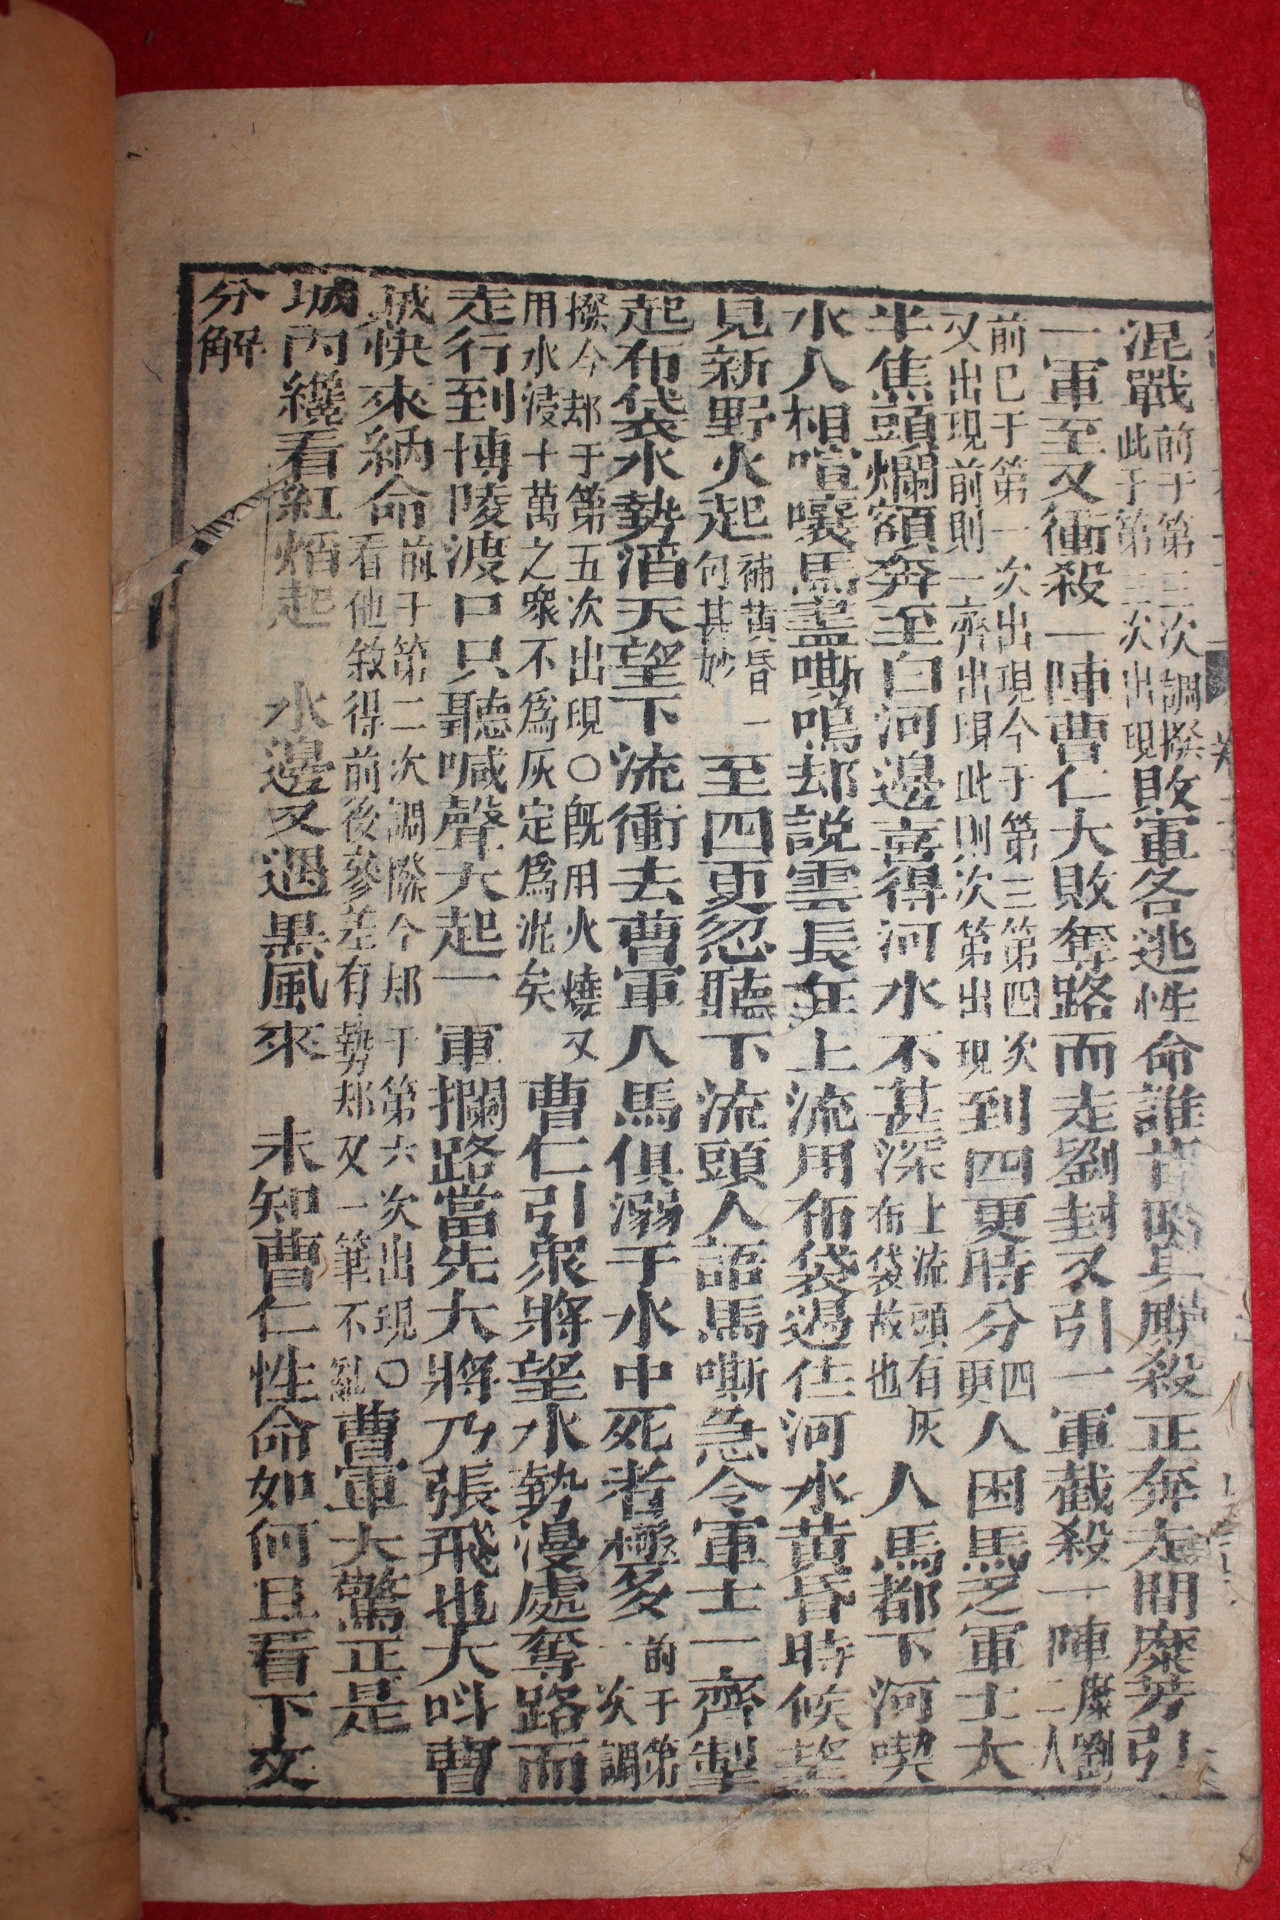 混戰前于第三次調撥此于第三次出現敗軍各逃性命誰肯回身厮殺正奔走間糜芳引
一軍至又衝殺一陣曹仁大敗奪路而走劉封又引一軍截殺一陣糜劉二人
前已于第一次出現今于第三第四次又出現前則一齊出現此則次第出現到四更時分四更人困馬乏軍士大
半焦頭爛額奔至白河邊喜得河水不甚深上流頭有布袋故也灰人馬都下河喫
水人相喧嚷馬盡嘶鳴却說雲長在上流用布袋遏住河水黃昏時候望
見新野火起補黃昏一句甚妙至四更忽聽下流頭人語馬嘶急令軍士一齊掣
起布袋水勢滔天望下流衝去曹軍人馬俱溺于水中死者極多前于第一次調
撥今却于第五次出現○旣用火燒又用水渰十萬之衆不爲灰定爲泥矣曹仁引眾將望水勢漫處奪路而
走行到博陵渡口只聽喊聲大起一軍攔路當先大將乃張飛也大呌曹
賊快來納命前于第二次調撥今却于第六次出現○看他敘得前後參差有勢却又一筆不亂曹軍大驚正是
城內纔看紅焰起 水邊又遇黑風來 未知曹仁性命如何且看下文
分解